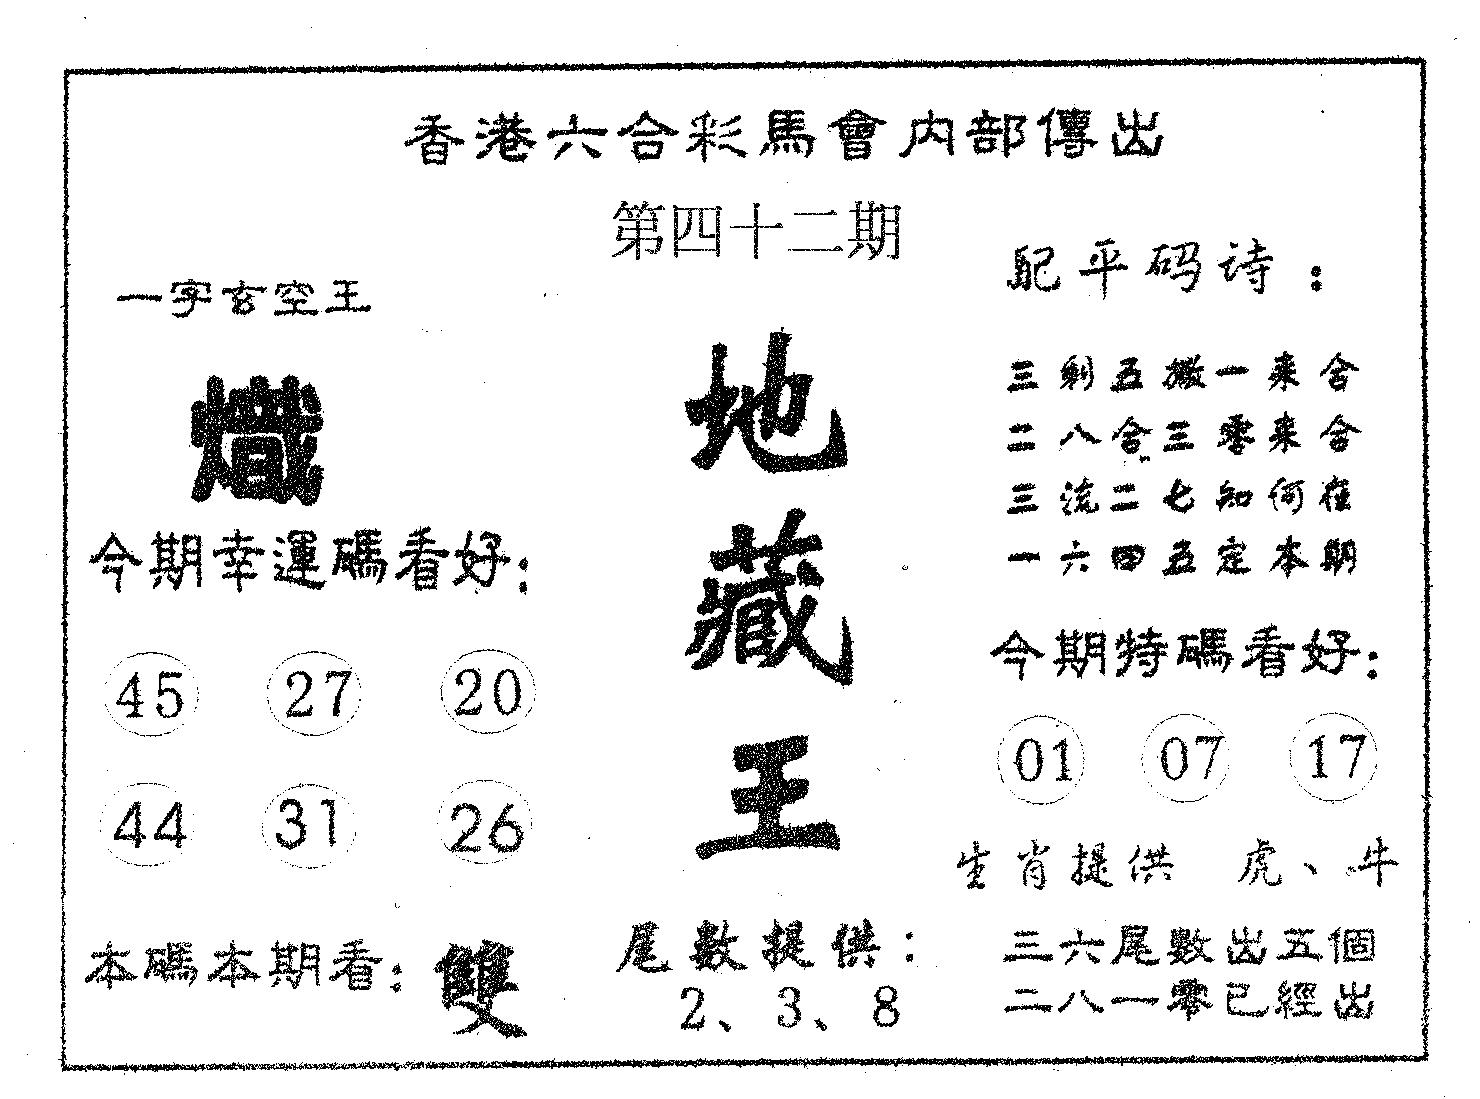 香港六合彩馬會内部傳出
第四十二期
一字玄空王
熾
今期幸運碼看好:
45 27 20
44 31 26
本碼本期看: 雙
地
藏
王
尾數提供:
2、3、8
配平码诗:
三剩五撒一来合
二八合三零来合
三流二七知何在
一六四五定本期
今期特碼看好:
01 07 17
生肖提供 虎、牛
三六尾數出五個
二八一零已經出